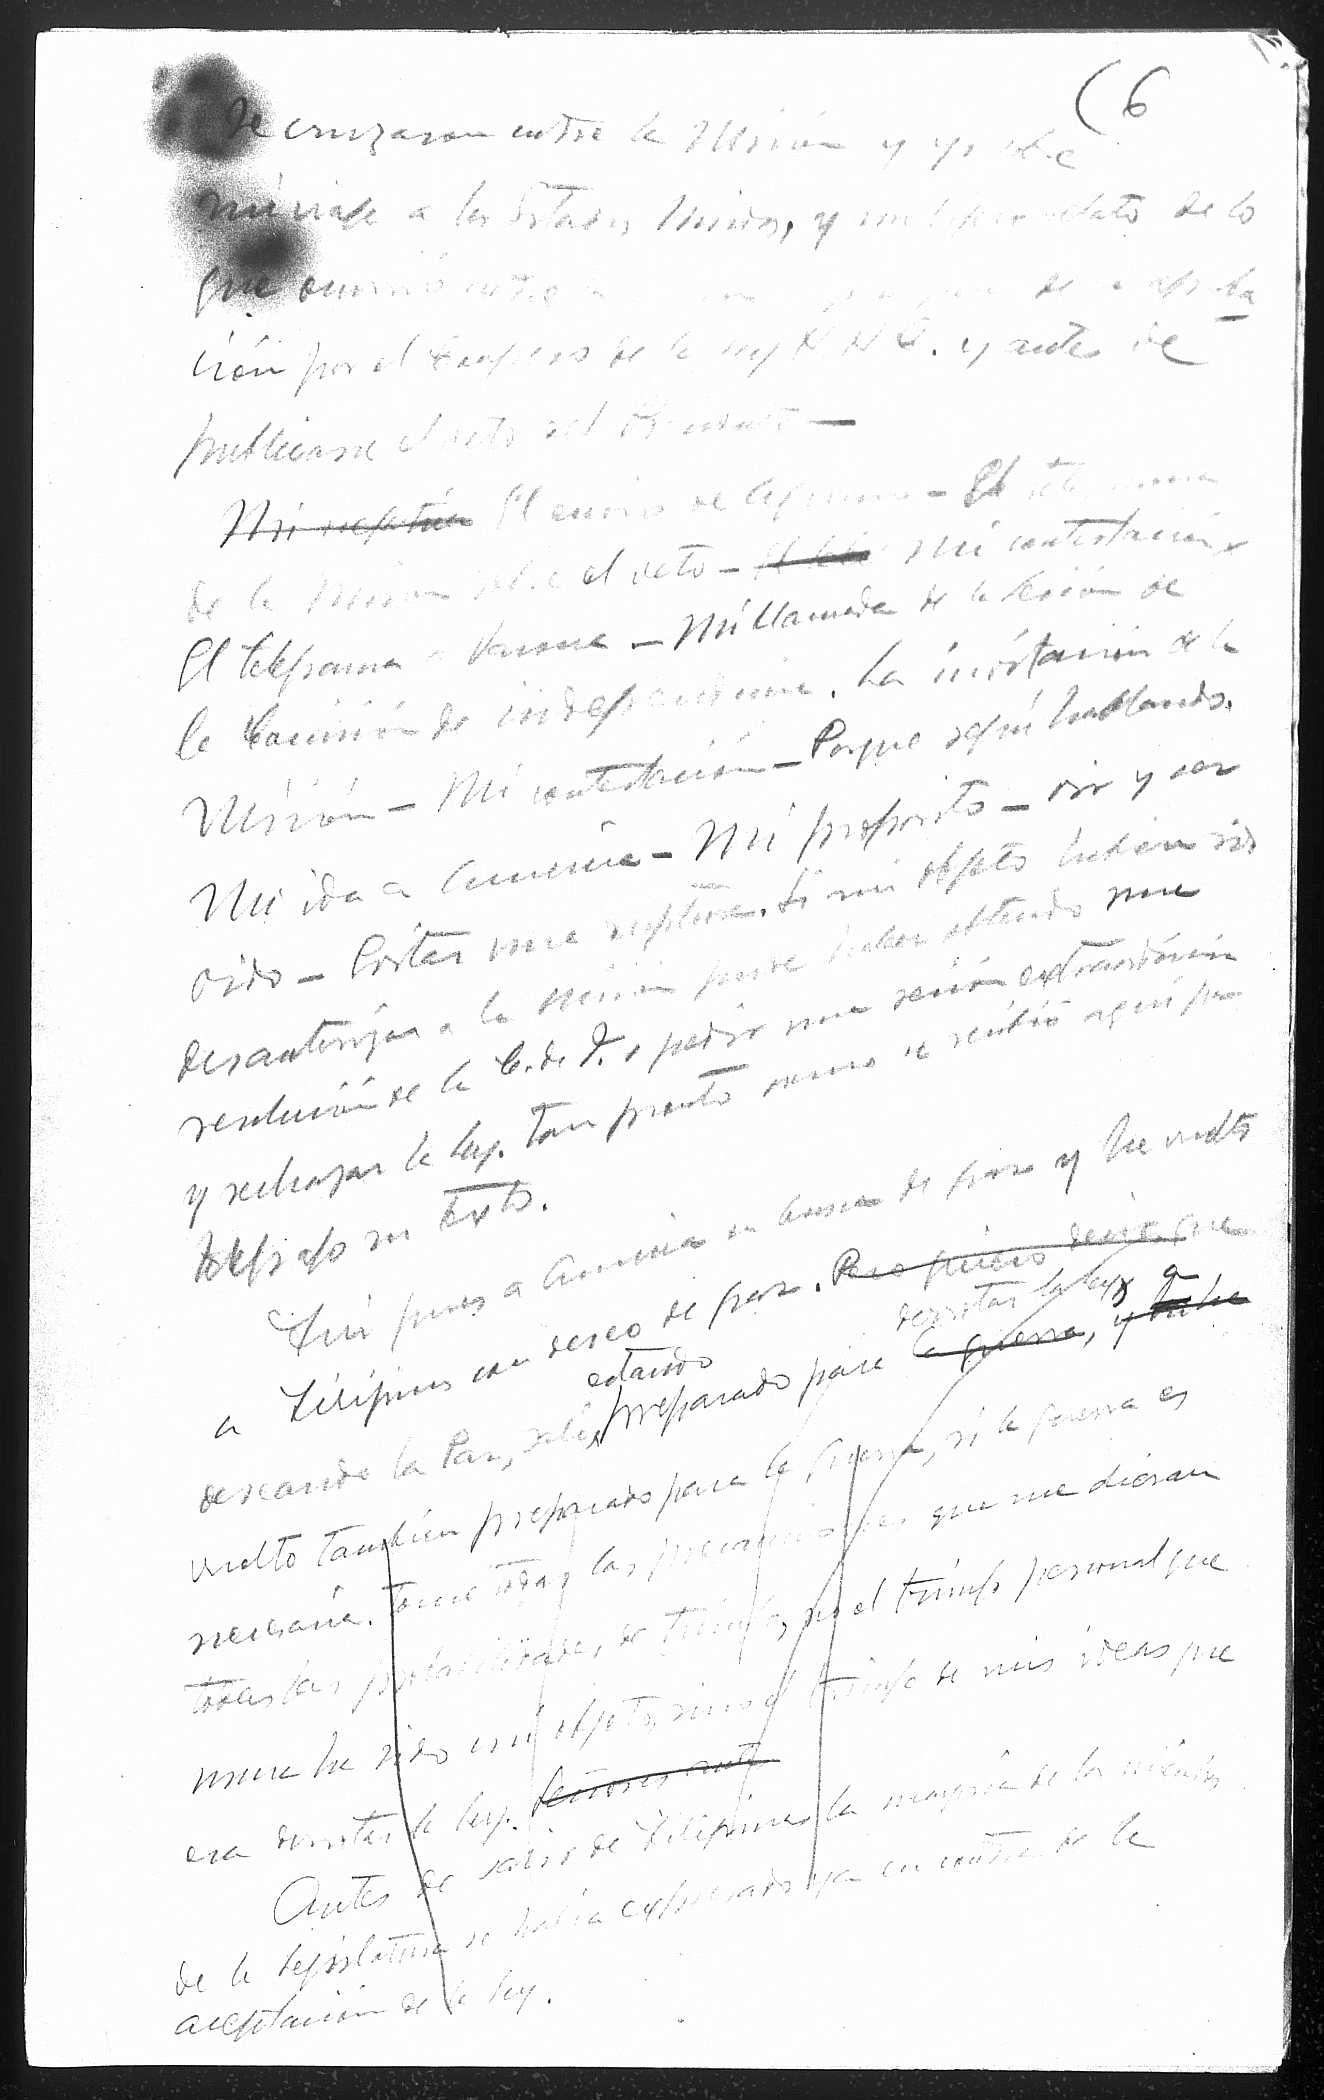 (6
se cruzaron entre la Misión y yo sobre
mi viaje a los Estados Unidos, y un relato de lo
que ocurrió entre la de la aproba
ción por el Congreso de la ley H. H. C. y antes de
publicarse el veto del Presidente —
Mi El envio de Aguinaldo — El
de la Misión sobre el veto — El tele mi contestación
El telegrama a — Mi llamada de la Sesión de
la Comisión de independencia. La invitación de la
Misión — Mi contestación — Porque seguí hablando.
Mi ida a America — Mi proposito — oir y ser
oido — Evitar una ruptura. Si mi objeto hubiera sido
desautorizar a la Misión pude haber obtenido una
resolución de la C. de I. o pedir una sesión extraordinaria
y rechazar la ley tan pronto como se recibió aquí por
telegrafo su texto.
Fuí pues a America en busca de paz y he vuelto
a Filipinas con deseo de paz. Pero quiero decir que
derrotar la ley, a
estando
deseando la Paz, preparado para la guerra, y
vuelto tambien preparado para la guerra, si la guerra es
necesaria. Tomé todas las precauciones que me dieran
todas las probabilidades de triunfo, no el triunfo personal que
nunca ha sido mi objeto, sino el triunfo de mis ideas que
era derrotar la ley. Señores ante
Antes de salir de Filipinas la mayoria de los miembros
de la Legislatura se habia expresado ya en contra de la
aceptación de la ley.